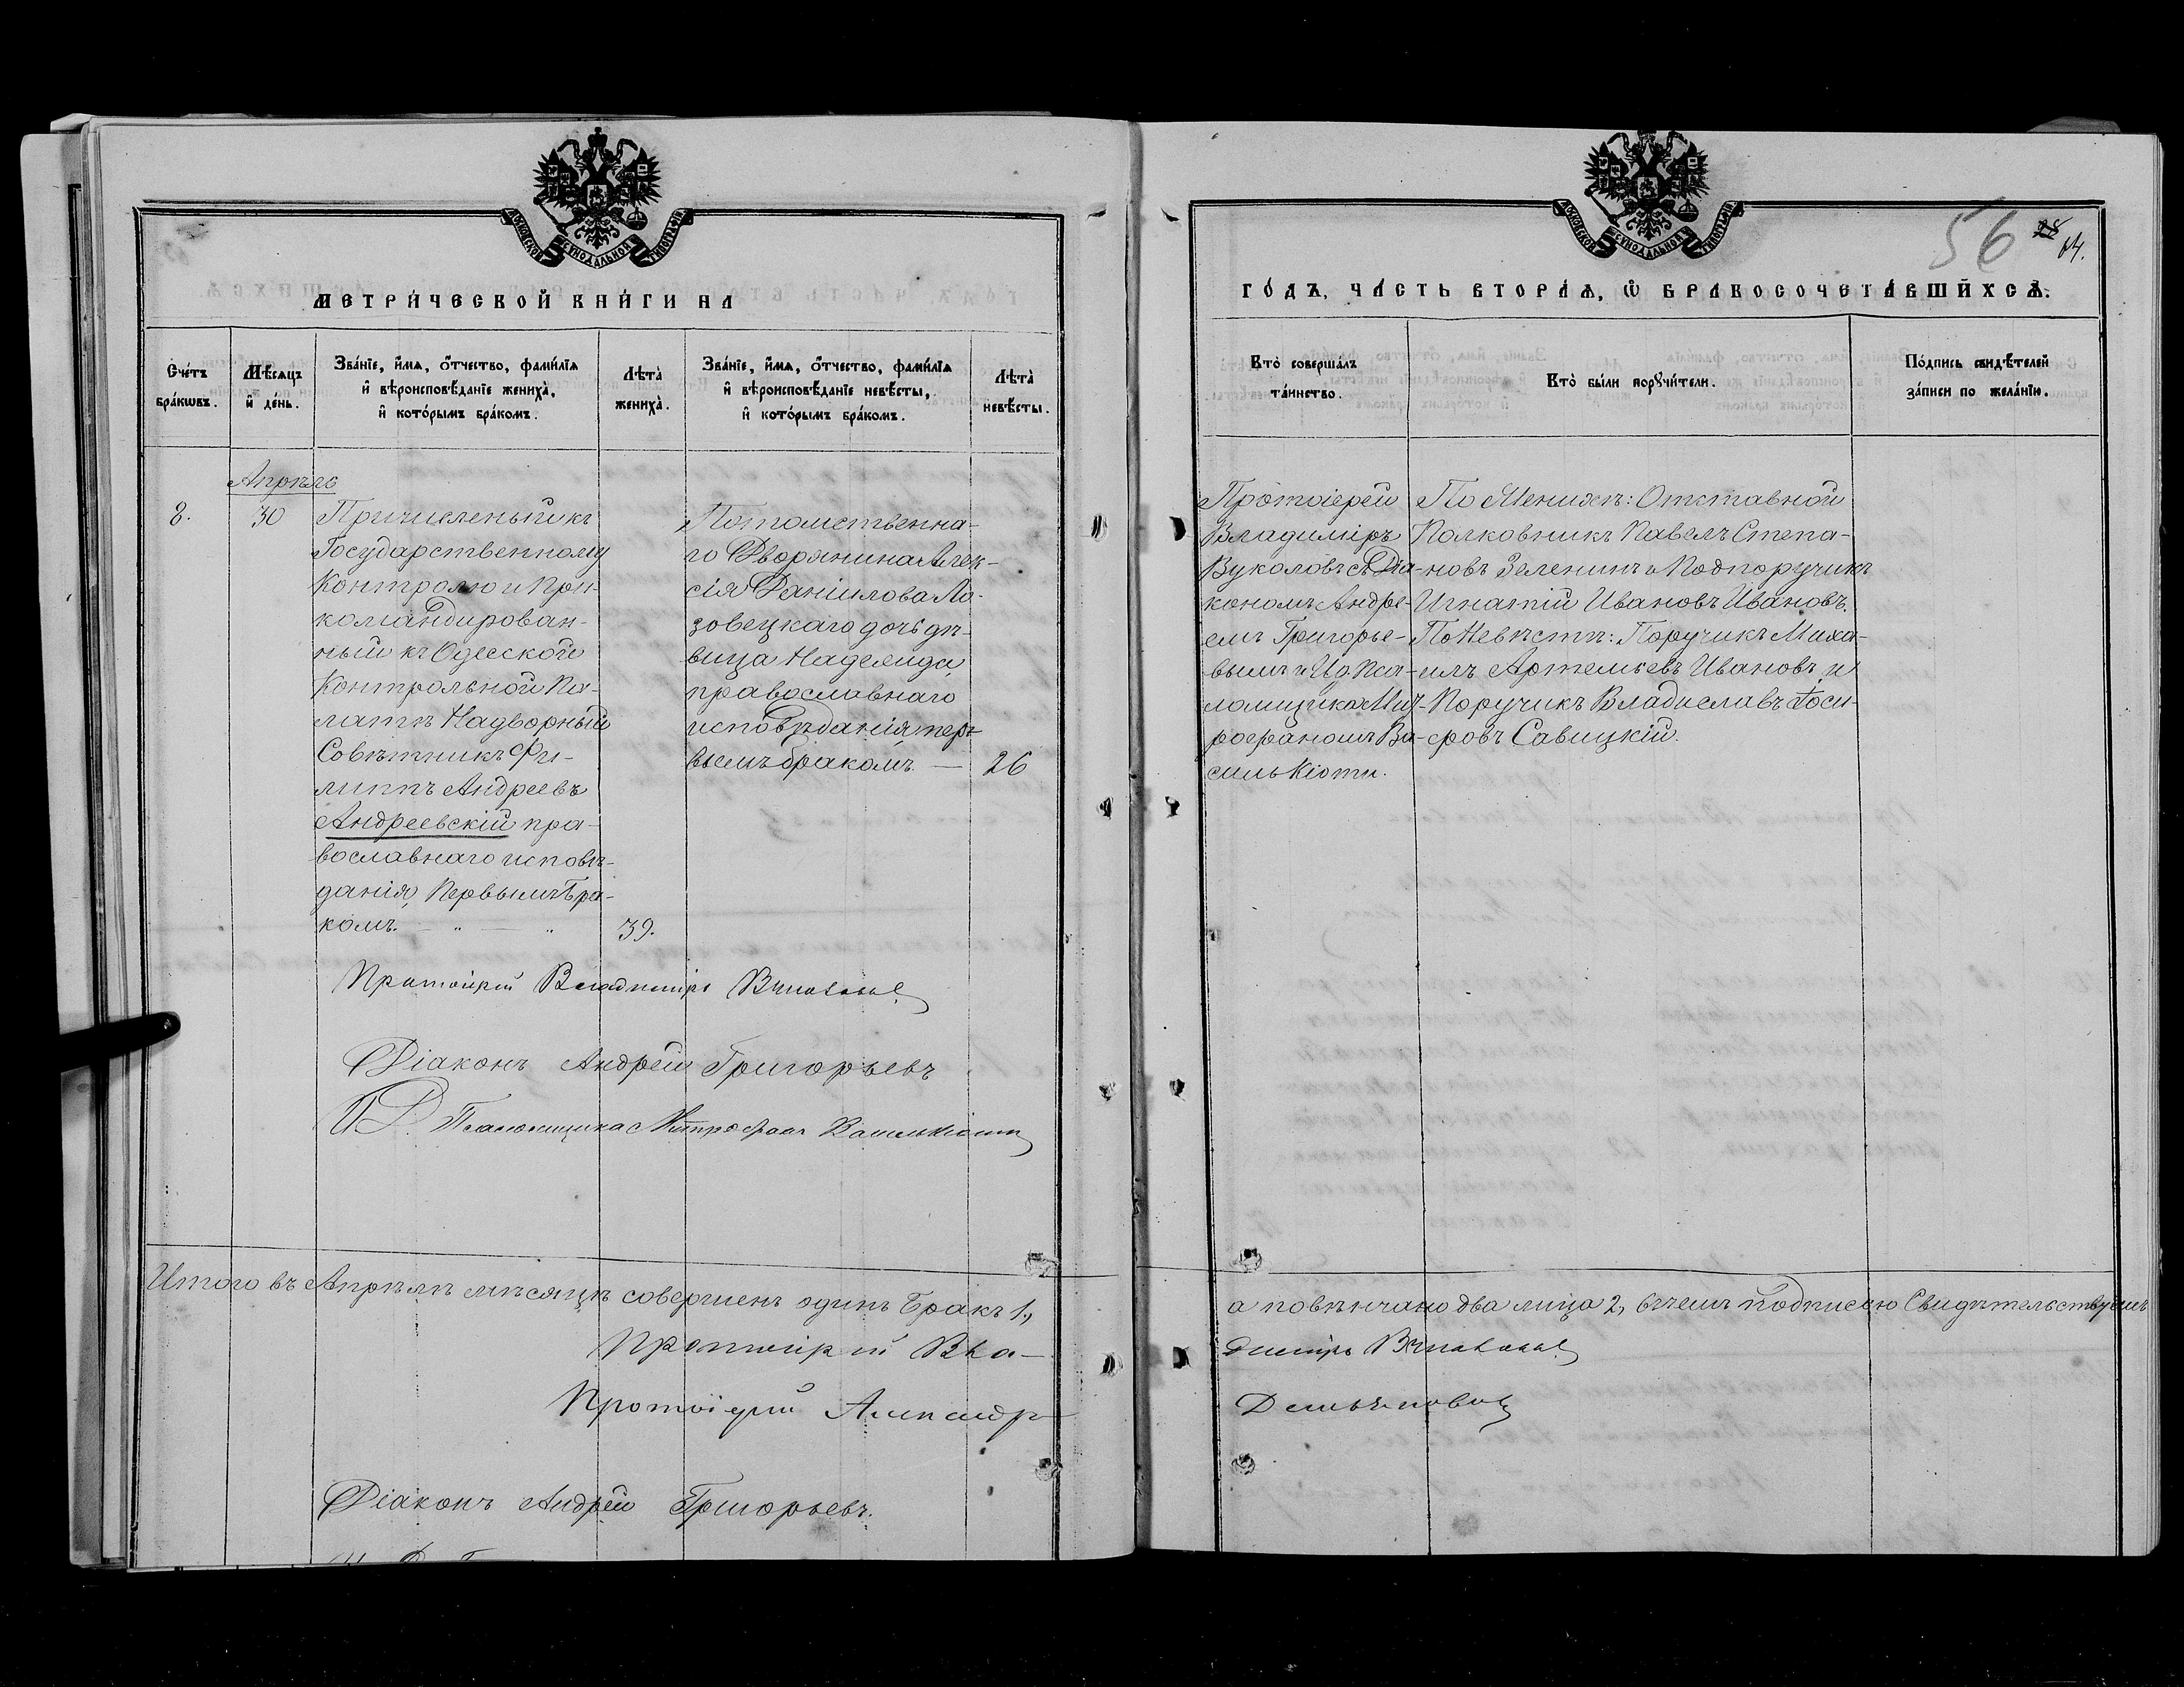 МОСКОВСКОЙ СѴНОДАЛЬНОЙ ТИПОГРАФІИ
МЕТРИ́ЧЕСКОЙ КНИ́ГИ НА
Сче́тъ
бра́кѡвъ.
Мѣ́сяцъ
и҆ де́нь.
Зва́нїе, и҆́мя, ѻ҆́тчество, фами́лїя
и҆ вѣроисповѣ́данїе жениха̀,
и҆ кото́рымъ бра́комъ.
Лѣта̀
жениха̀.
Зва́нїе, и҆́мя, ѻ҆́тчество, фами́лїя
и҆ вѣроисповѣ́данїе невѣ́сты,
и҆ кото́рымъ бра́комъ.
Лѣта̀
невѣ́сты.
Апрѣль
8.
30
Причисленый къ
Государственному
Контролю и При-
командирован-
ный къ Одесской
Контрольной Па-
латѣ Надворный
Совѣтникъ Фи-
липпъ Андреевъ
Андреевскій пра-
вославнаго исповѣ-
данія, Первымъ Бра-
комъ. — „ — „
39.
Потомственна-
го Дворянина Алек-
сія Даніилова Ло-
зовецкаго дочь дѣ-
вица Надежда,
православнаго
исповѣданія, пер-
вымъ бракомъ. —
26
Протоіерей Владиміръ Вуколовъ
Діаконъ Андрей Григорьевъ
И.Д. Псаломщика Митрофанъ Василькіоти
Итого въ Апрѣлѣ мѣсяцѣ совершенъ одинъ Бракъ 1,
Протоіерей Вла-
Протоіерей Александр
Діаконъ Андрей Григорьевъ.
МОСКОВСКОЙ СѴНОДАЛЬНОЙ ТИПОГРАФІИ
56
28
64.
ГО́ДЪ, ЧА́СТЬ ВТОРА́Я, Ѡ҆ БРАКОСОЧЕТА́ВШИХСЯ.
Кто̀ соверша́лъ
та́инство.
Кто̀ бы́ли порꙋчи́тели.
По́дпись свидѣ́телей
за́писи по жела́нїю.
Протоіерей
Владиміръ
Вуколовъ съ Діа-
кономъ Андре-
емъ Григорье-
вымъ и И.д. Пса-
ломщика Мит-
рофаномъ Ва-
силькіоти.
По Женихѣ: Отставной
Полковникъ Павелъ Степа-
новъ Зеленинъ и Подпоручикъ
Игнатій Ивановъ Ивановъ.
По Невѣстѣ: Поручикъ Миха-
илъ Артемьевъ Ивановъ и
Поручикъ Владиславъ Іоси-
фовъ Савицкій.
а повѣнчано два лица 2, въ чемъ подписью Свидѣтельствуемъ
диміръ Вуколовъ
Демьяновичъ